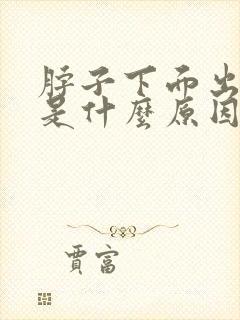 脖子下而出
是什麼原因
賈富